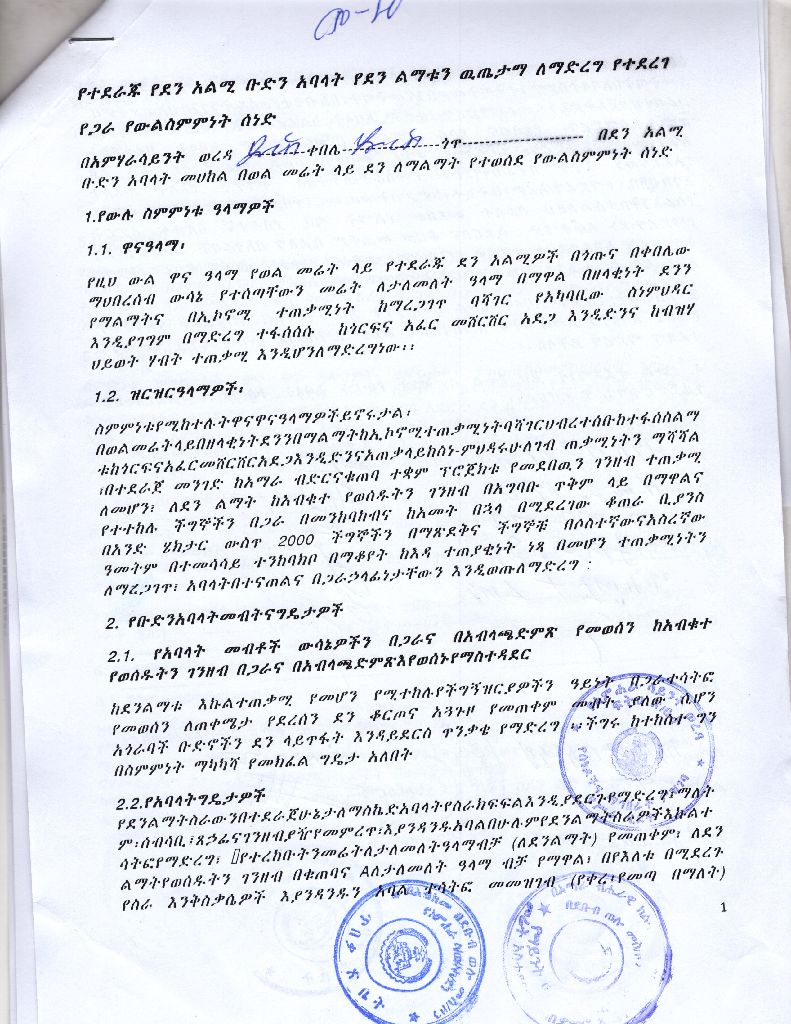 የተደራጁ የደን አልሚ ቡድን አባላት የደን ልማቱን ዉጤታማ ለማድረግ የተደረገ
የጋራ የውልስምምነት ሰነድ
በአምሃራሳይንት ወረዳ ቀበሌ ጎጥ በደን አልሚ
ቡድን አባላት መሀከል በወል መሬት ላይ ደን ለማልማት የተወሰደ የውልስምምነት ሰነድ
1.የውሉ ስምምነቱ ዓላማዎች
1.1. ዋናዓላማ፡
የዚህ ውል ዋና ዓላማ የወል መሬት ላይ የተደራጁ ደን አልሚዎች በጎጡና በቀበሌው
ማህበረሰብ ውሳኔ የተሰጣቸውን መሬት ለታለመለት ዓላማ በማዋል በዘላቂነት ደንን
የማልማትና በኢኮኖሚ ተጠቃሚነት ከማረጋገጥ ባሻገር የአካባቢው ስነምህዳር
እንዲያገግም በማድረግ ተፋሰሱ ከጎርፍና አፈር መሸርሸር አደጋ እንዲድንና ከብዝሃ
ህይወት ሃብት ተጠቃሚ እንዲሆንለማድረግነው፡፡
1.2. ዝርዝርዓላማዎች፡
ስምምነቱየሚከተሉትዋናዋናዓላማዎችይኖሩታል፡
በወልመሬትላይበዘላቂነትደንንበማልማትከኢኮኖሚተጠቃሚነትባሻገርህብረተሰቡከተፋሰስልማ
ቱከጎርፍናአፈርመሸርሸርአደጋእንዲድንናአጠቃላይከስነ-ምህዳሩሁለገብ ጠቃሚነትን ማሻሻል
፣በተደራጀ መንገድ ከአማራ ብድርናቁጠባ ተቋም ፕሮጀክቱ የመደበዉን ገንዘብ ተጠቃሚ
ለመሆን፣ ለደን ልማት ከአብቁተ የወሰዱትን ገንዘብ በአግባቡ ጥቅም ላይ በማዋልና
የተተከሉ ችግኞችን በጋራ በመንከባከብና ከአመት በኋላ በሚደረገው ቆጠራ ቢያንስ
በአንድ ሄክታር ውስጥ 2000 ችግኞችን በማጽደቅና ችግኞቹ በሶስተኛውናአስረኛው
ዓመትም በተመሳሳይ ተንከባክቦ በማቆየት ከእዳ ተጠያቂነት ነጻ በመሆን ተጠቃሚነትን
ለማረጋገጥ፣ አባላትበተናጠልና በጋራኃላፊነታቸውን እንዲወጡለማድረግ ፡
2. የቡድንአባላትመብትናግዴታዎች
2.1. የአባላት መብቶች ውሳኔዎችን በጋራና በአብላጫድምጽ የመወሰን ከአብቁተ
የወሰዱትን ገንዘብ በጋራና በአብላጫድምጽእየወሰኑየማስተዳደር
ከደንልማቱ እኩልተጠቃሚ የመሆን የሚተከሉየችግኝዝርያዎችን ዓይነት በጋራተሳትፎ
የመወሰን ለጠቀሜታ የደረሰን ደን ቆርጦና አጓጉዞ የመጠቀም መብት ያለው ሲሆን
አጎራባች ቡድኖችን ደን ላይጥፋት እንዳይደርስ ጥንቃቄ የማድረግ ፡፡ችግሩ ከተከሰተ ግን
በስምምነት ማካካሻ የመክፈል ግዴታ አለበት
2.2.የአባላትግዴታዎች
የደንልማትስራውንበተደራጀሁኔታለማስኬድአባላትየስራክፍፍልእንዲያደርጉየማድረግ፣ማለት
ም፡ሰብሳቢ፣ጸኃፊናገንዘብያዥየመምረጥ፣እያንዳንዱአባልበሁሉምየደንልማትስራዎችእኩልተ
ሳትፎየማድረግ፣ የተረከቡትንመሬትለታለመለትዓላማብቻ (ለደንልማት) የመጠቀም፣ ለደን
ልማትየወሰዱትን ገንዘብ በቁጠባና Aለታለመለት ዓላማ ብቻ የማዋል፣ በየእለቱ በሚደረጉ
የስራ እንቅስቃሴዎች እያንዳንዱን አባል ተሳትፎ መመዝገብ (የቀረ፣የመጣ በማለት)
1